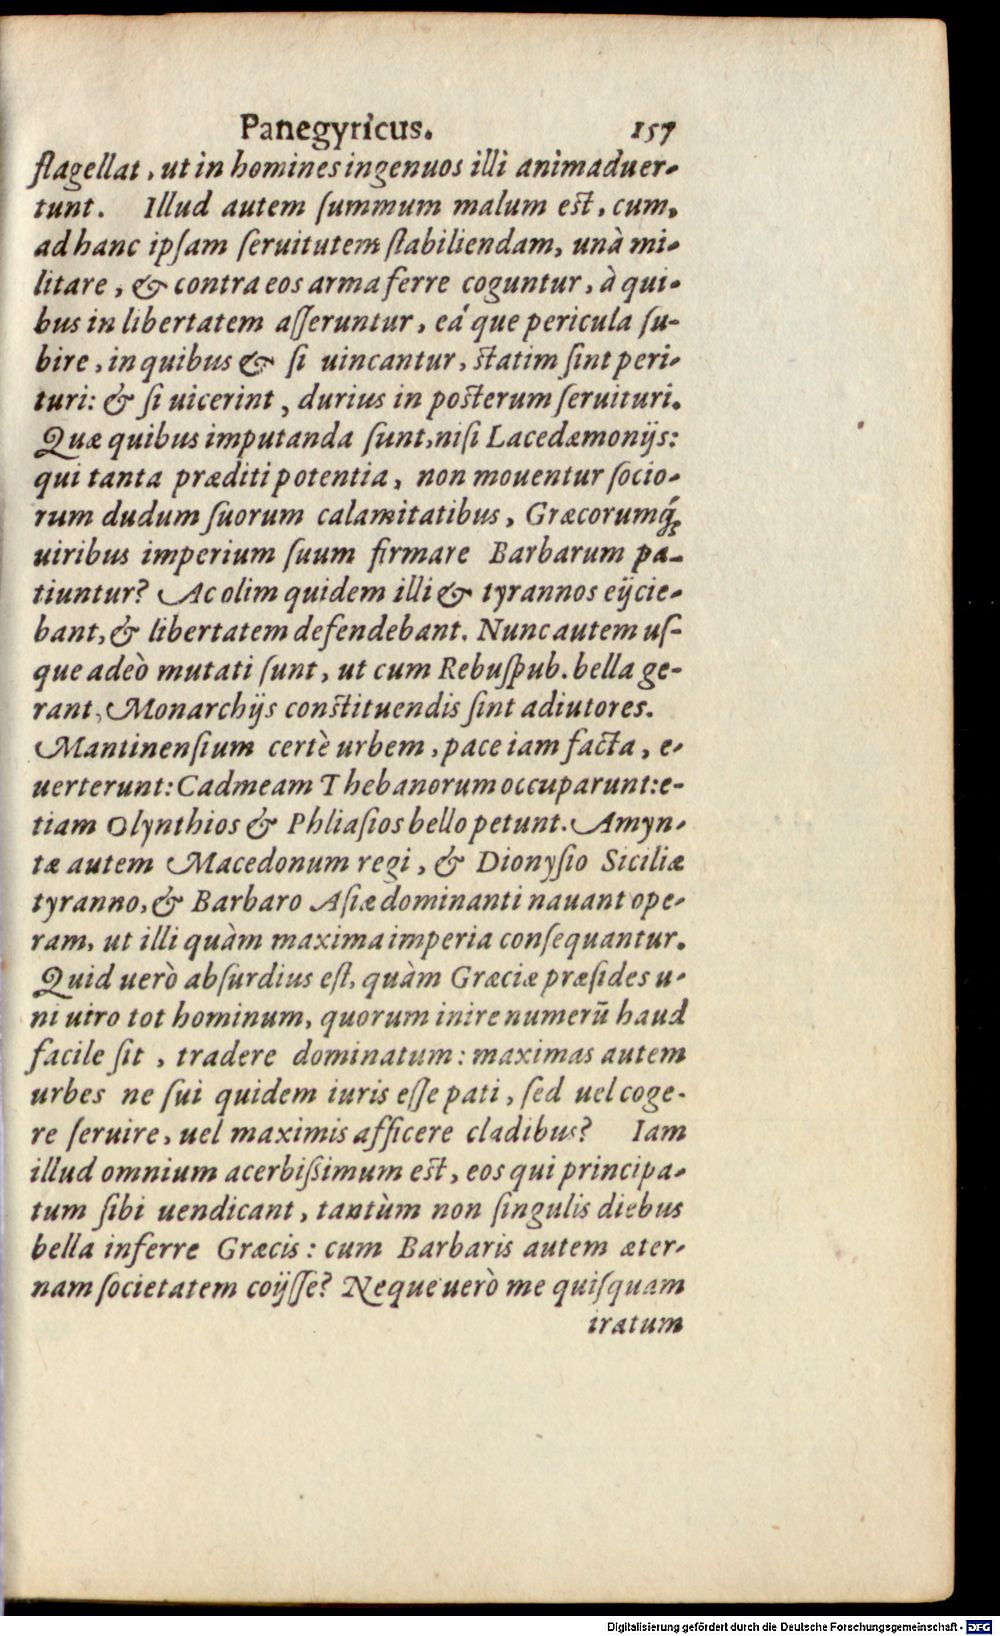 Panegyricus. 157
flagellat, ut in homines ingenuos illi animaduer-
tunt. Illud autem ſummum malum eſt, cum,
ad hanc ipſam ſeruitutem ſtabiliendam, unà mi-
litare, & contra eos arma ferre coguntur, à qui-
bus in libertatem aſſeruntur, eá que pericula ſu-
bire, in quibus & ſi uincantur, ſtatim ſint peri-
turi: & ſi uicerint, durius in poſterum ſeruituri.
Quæ quibus imputanda ſunt, niſi Lacedæmonijs:
qui tanta præditi potentia, non mouentur ſocio-
rum dudum ſuorum calamitatibus, Græcorumq́;
uiribus imperium ſuum firmare Barbarum pa-
tiuntur? Ac olim quidem illi & tyrannos eijcie-
bant, & libertatem defendebant. Nunc autem uſ-
que adeò mutati ſunt, ut cum Rebuſpub. bella ge-
rant, Monarchijs conſtituendis ſint adiutores.
Mantinenſium certè urbem, pace iam facta, e-
uerterunt: Cadmeam Thebanorum occuparunt: e-
tiam Olynthios & Phliaſios bello petunt. Amyn-
tæ autem Macedonum regi, & Dionyſio Siciliæ
tyranno, & Barbaro Aſiæ dominanti nauant ope-
ram, ut illi quàm maxima imperia conſequantur.
Quid uerò abſurdius eſt, quàm Græciæ præſides u-
ni uiro tot hominum, quorum inire numerū haud
facile ſit, tradere dominatum: maximas autem
urbes ne ſui quidem iuris eſſe pati, ſed uel coge-
re ſeruire, uel maximis afficere cladibus? Iam
illud omnium acerbiſsimum eſt, eos qui principa-
tum ſibi uendicant, tantùm non ſingulis diebus
bella inferre Græcis: cum Barbaris autem æter-
nam ſocietatem coijſſe? Neque uerò me quiſquam
iratum
Digitalisierung gefördert durch die Deutsche Forschungsgemeinschaft - DFG